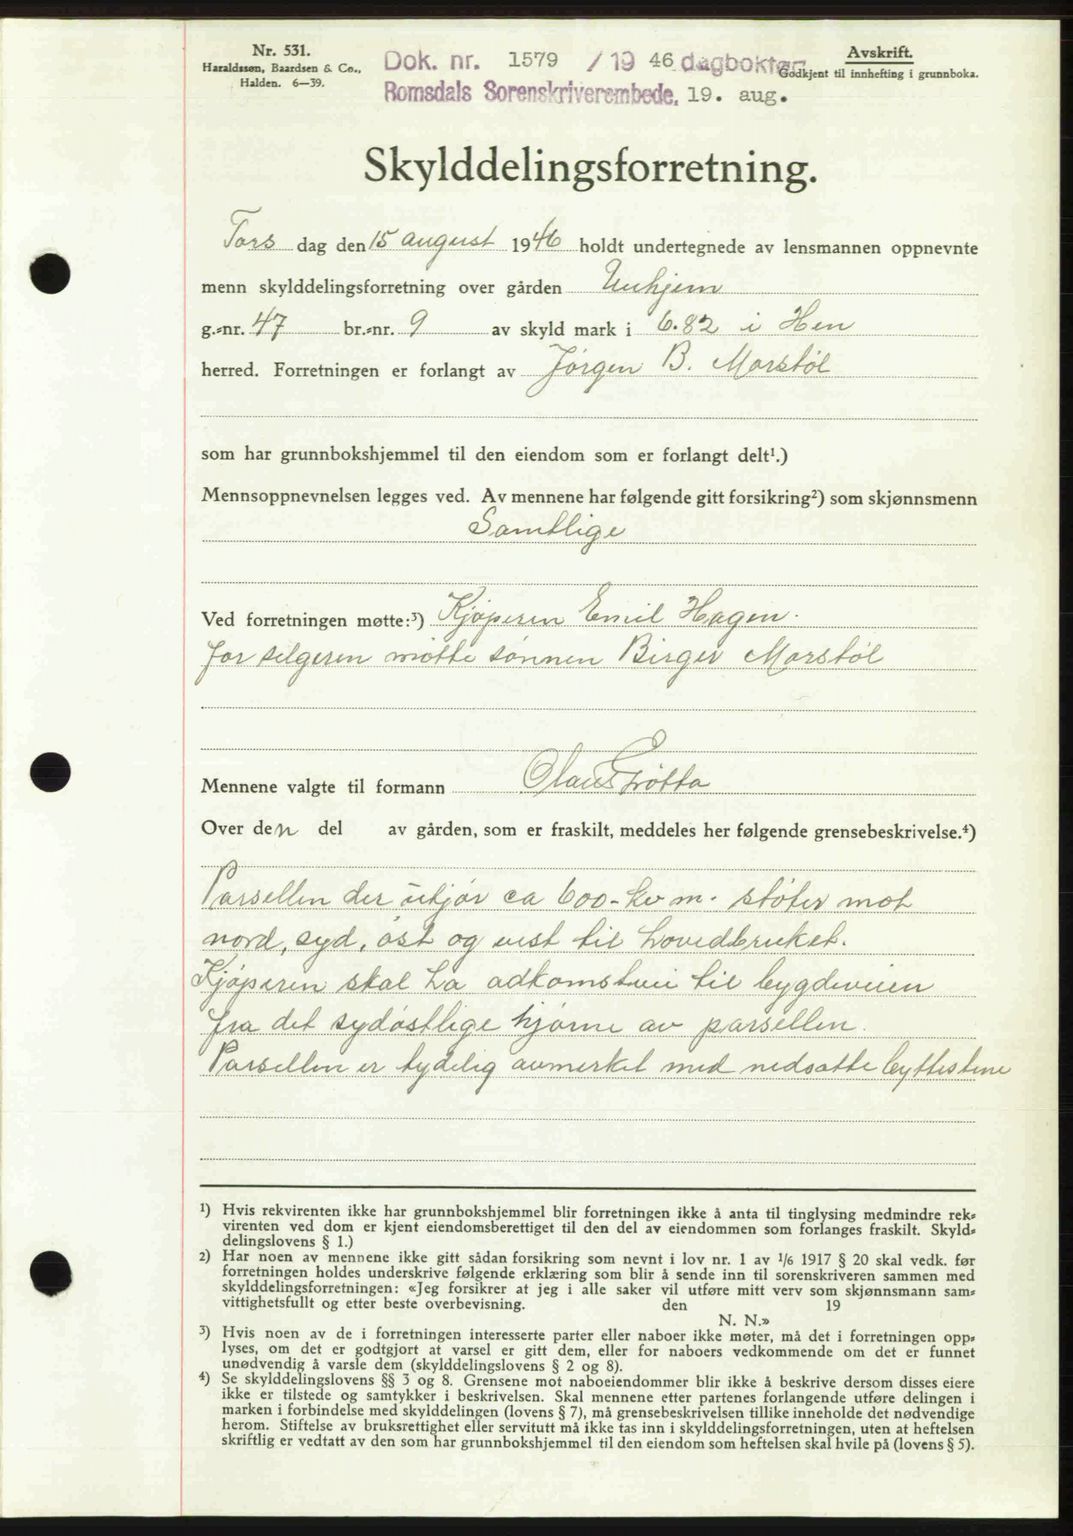 Nr. 531.
Haraldssøn, Baardsen & Co.,
Halden. 6—39.
Dok. nr. 1579 / 19 46 dagboken
Romsdals Sorenskriverembede, 19. aug.
Avskrift.
Godkjent til innhefting i grunnboka.
Skylddelingsforretning.
Tors dag den 15 august 1946 holdt undertegnede av lensmannen oppnevnte
menn skylddelingsforretning over gården Unhjem
g.-nr. 47 br.-nr. 9 av skyld mark i 6.82 i Hen
herred. Forretningen er forlangt av Jørgen B. Morstøl
som har grunnbokshjemmel til den eiendom som er forlangt delt¹.)
Mennsoppnevnelsen legges ved. Av mennene har følgende gitt forsikring²) som skjønnsmenn
Samtlige
Ved forretningen møtte:³) Kjøperen Emil Hagen.
for selgeren møtte sønnen Birger Morstøl
Mennene valgte til formann Olaus Grøtta
Over den del av gården, som er fraskilt, meddeles her følgende grensebeskrivelse.⁴)
Parsellen der utjør ca 600 - kv m. støter mot
nord, syd, øst og vest til hovedbruket.
Kjøperen skal ha adkomstvei til bygdeveien
fra det sydøstlige hjørne av parsellen.
Parsellen er tydelig avmerket med nedsatte byttestene
¹) Hvis rekvirenten ikke har grunnbokshjemmel blir forretningen ikke å anta til tinglysing medmindre rek-
virenten ved dom er kjent eiendomsberettiget til den del av eiendommen som forlanges fraskilt. Skyld-
delingslovens § 1.)
²) Har noen av mennene ikke gitt sådan forsikring som nevnt i lov nr. 1 av 1/6 1917 § 20 skal vedk. før
forretningen holdes underskrive følgende erklæring som blir å sende inn til sorenskriveren sammen med
skylddelingsforretningen: «Jeg forsikrer at jeg i alle saker vil utføre mitt verv som skjønnsmann sam-
vittighetsfullt og etter beste overbevisning. den 19
N. N.»
³) Hvis noen av de i forretningen interesserte parter eller naboer ikke møter, må det i forretningen opp-
lyses, om det er godtgjort at varsel er gitt dem, eller for naboers vedkommende om det er funnet
unødvendig å varsle dem (skylddelingslovens § 2 og 8).
⁴) Se skylddelingslovens §§ 3 og 8. Grensene mot naboeiendommer blir ikke å beskrive dersom disses eiere
ikke er tilstede og samtykker i beskrivelsen. Skal mennene etter partenes forlangende utføre delingen i
marken i forbindelse med skylddelingen (lovens § 7), må grensebeskrivelsen tillike inneholde det nødvendige
herom. Stiftelse av bruksrettighet eller servitutt må ikke tas inn i skylddelingsforretningen, uten at heftelsen
skriftlig er vedtatt av den som har grunnbokshjemmel til den eiendom som heftelsen skal hvile på (lovens § 5).